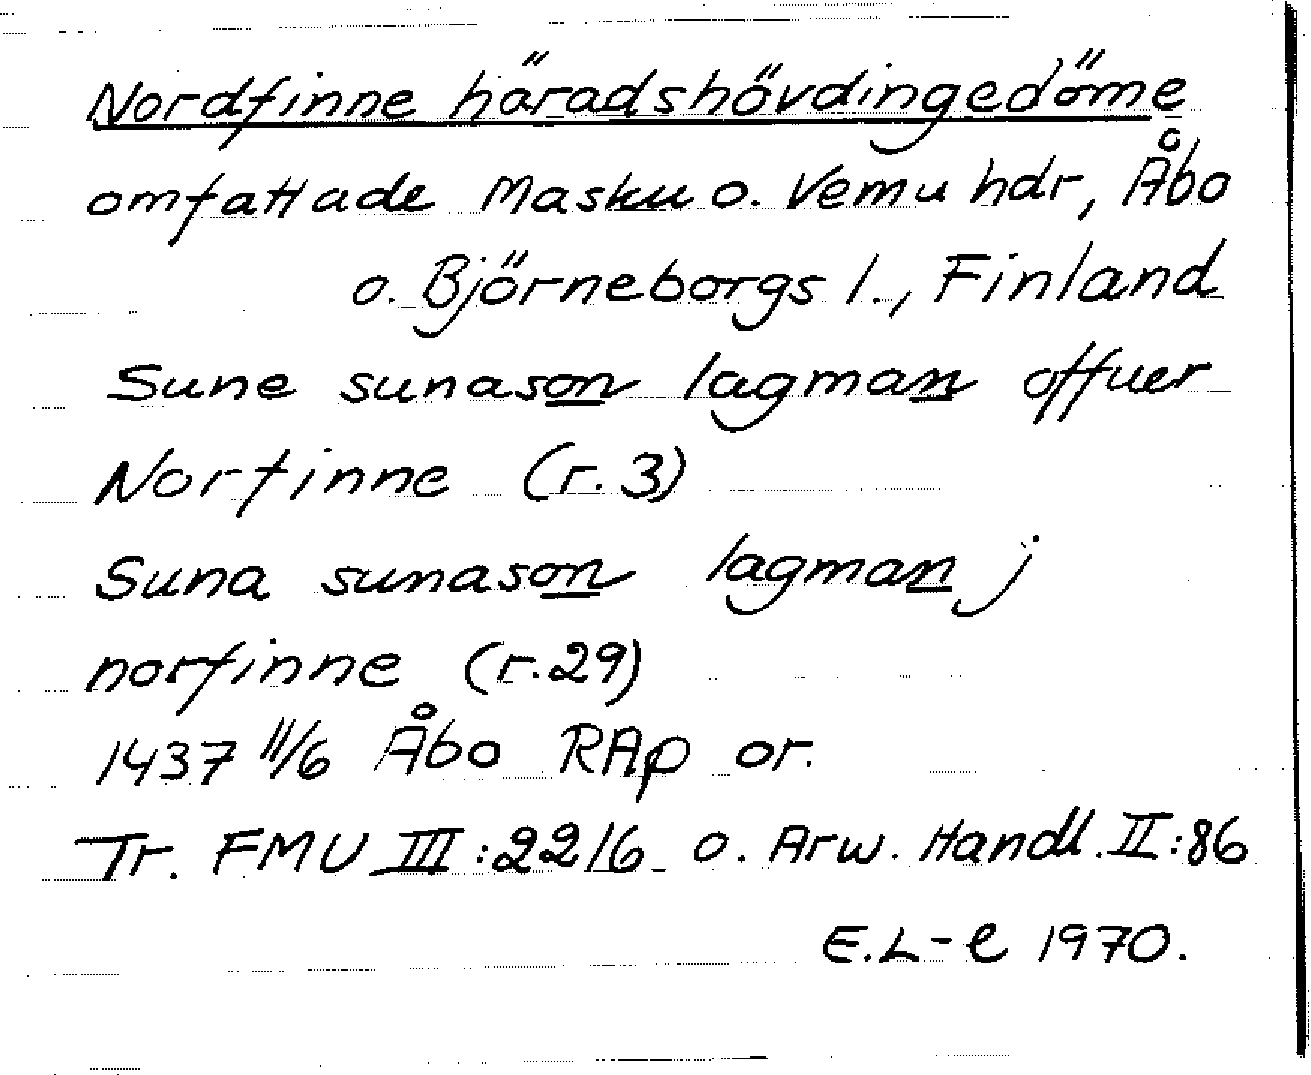 Nordfinne häradshövdingedöme
omfattade Masku o. Vemu hdr, Åbo
o. Björneborgs l., Finland
Sune sunason lagman offuer
Norfinne (r. 3)
Suna sunason lagman j
norfinne (r. 29)
1437 11/6 Åbo RAp or.
Tr. FMU III:2216 o. Arw. Handl. II:86
E.L-e 1970.